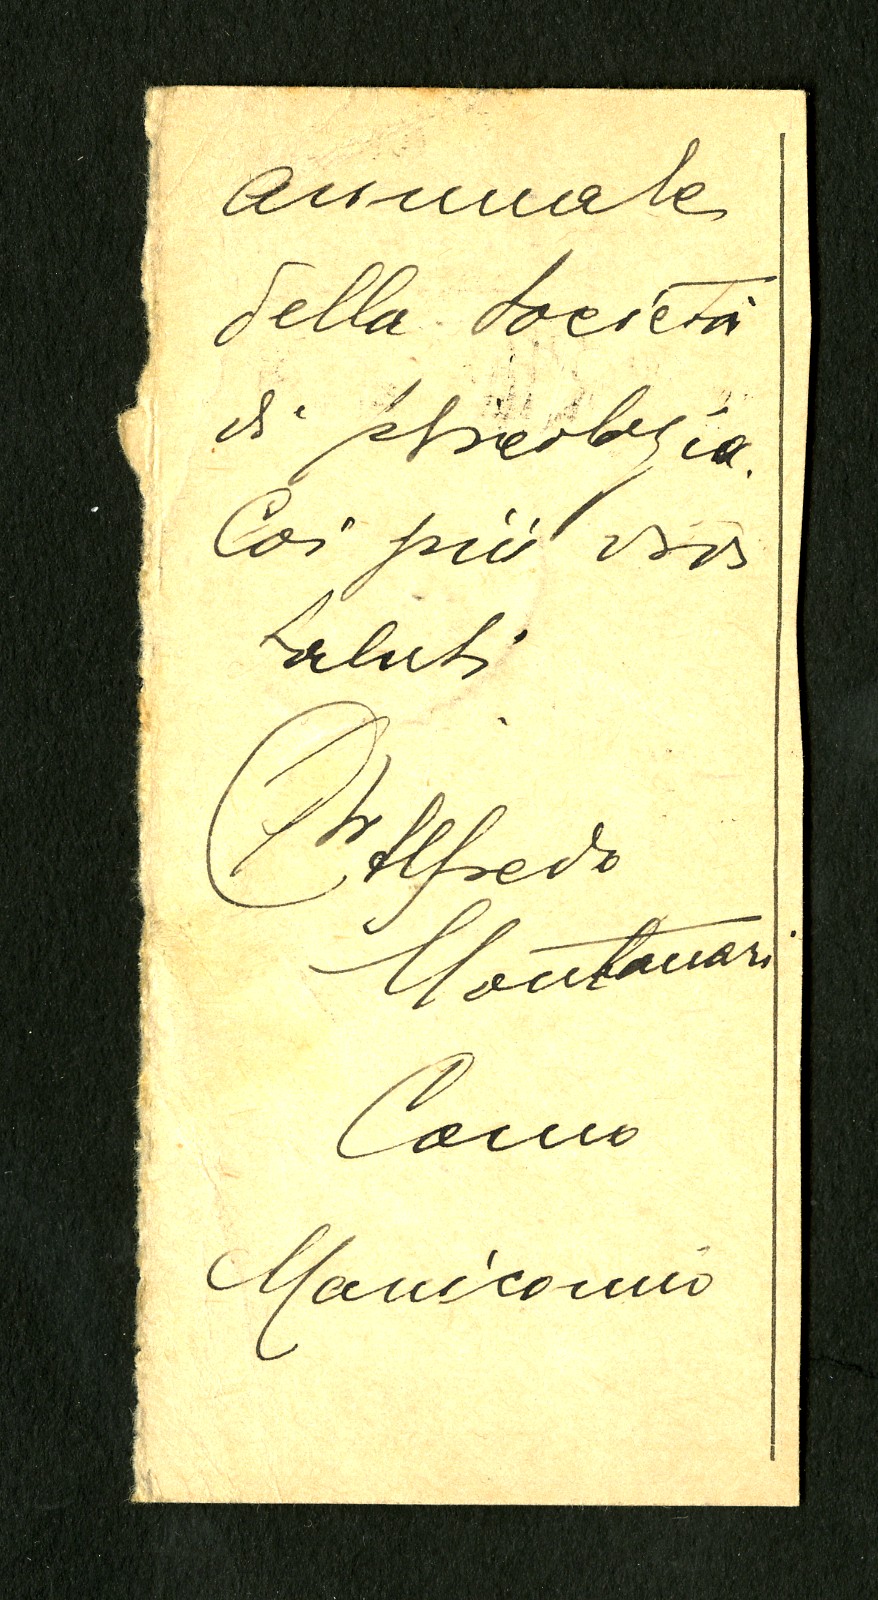 annuale
della Società
di
Coi più vivi
saluti
Dr Alfredo
Montanari
Como
Manicomio